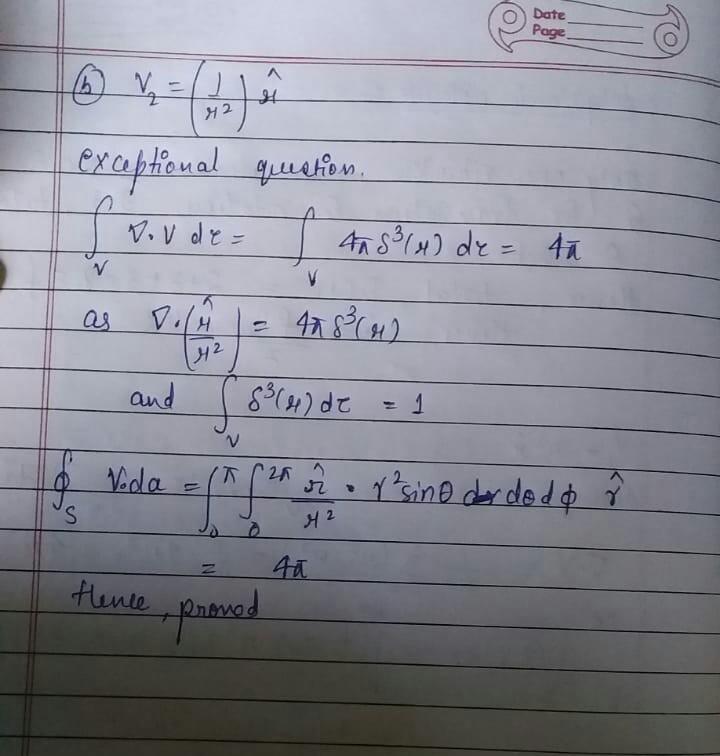 Date
Page
(b) V₂ = (1/r²) r̂
exceptional question.
∫_V ∇.V dτ = ∫_V 4π δ³(r) dτ = 4π
as ∇.(r̂/r²) = 4π δ³(r)
and ∫_V δ³(r) dτ = 1
∮_S V.da = ∫₀^π ∫₀^2π r̂/r² . r² sinθ dθ dϕ r̂
= 4π
Hence, proved